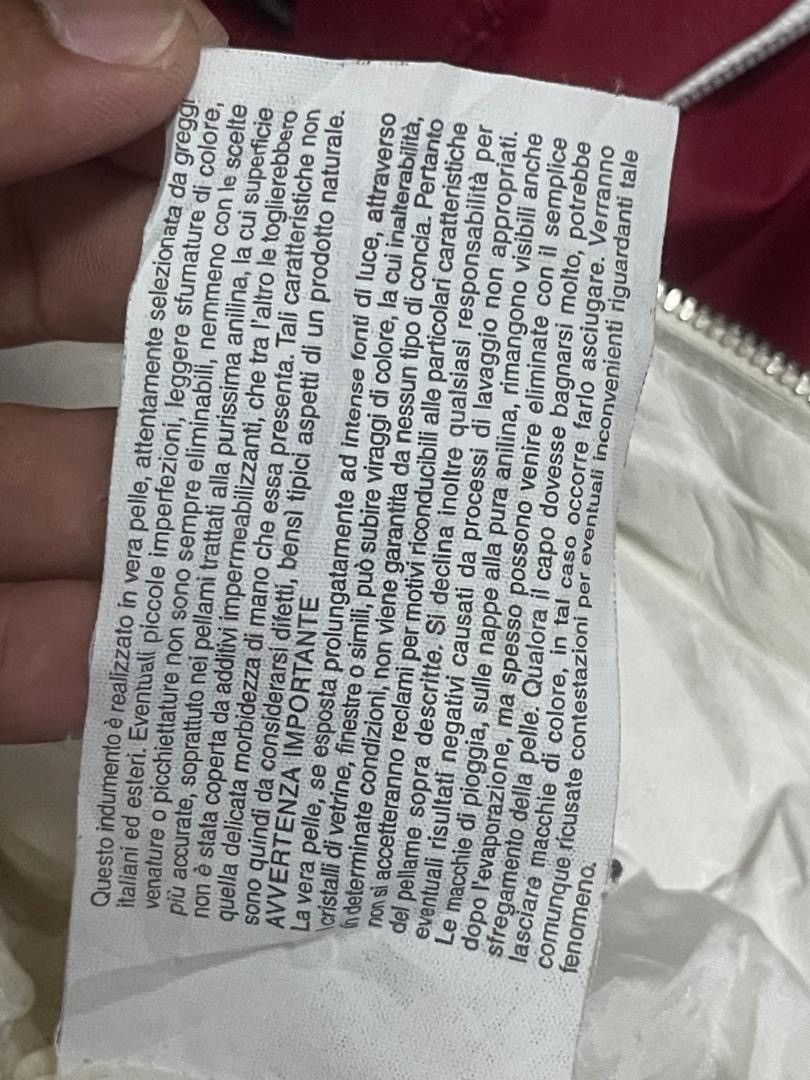 Questo indumento è realizzato in vera pelle, attentamente selezionata da greggi
italiani ed esteri. Eventuali piccole imperfezioni, leggere sfumature di colore,
venature o picchiettature non sono sempre eliminabili, nemmeno con le scelte
più accurate, soprattuto nei pellami trattati alla purissima anilina, la cui superficie
non è stata coperta da additivi impermeabilizzanti, che tra l'altro le toglierebbero
quella delicata morbidezza di mano che essa presenta. Tali caratteristiche non
sono quindi da considerarsi difetti, bensì tipici aspetti di un prodotto naturale.
AVVERTENZA IMPORTANTE
La vera pelle, se esposta prolungatamente ad intense fonti di luce, attraverso
cristalli di vetrine, finestre o simili, può subire viraggi di colore, la cui inalterabilità,
in determinate condizioni, non viene garantita da nessun tipo di concia. Pertanto
non si accetteranno reclami per motivi riconducibili alle particolari caratteristiche
del pellame sopra descritte. Si declina inoltre qualsiasi responsabilità per
eventuali risultati negativi causati da processi di lavaggio non appropriati.
Le macchie di pioggia, sulle nappe alla pura anilina, rimangono visibili anche
dopo l'evaporazione, ma spesso possono venire eliminate con il semplice
sfregamento della pelle. Qualora il capo dovesse bagnarsi molto, potrebbe
lasciare macchie di colore, in tal caso occorre farlo asciugare. Verranno
comunque ricusate contestazioni per eventuali inconvenienti riguardanti tale
fenomeno.